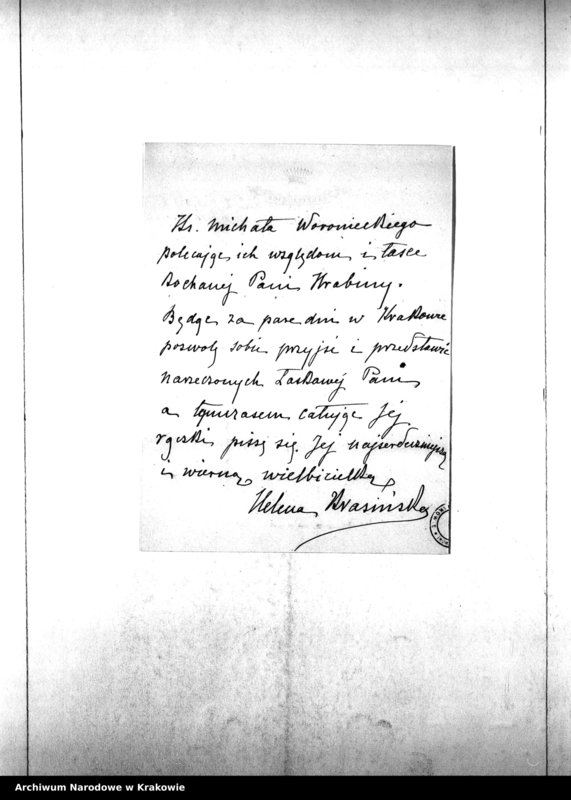 Ks. Michała Woronieckiego
polecając ich względom i łasce
Kochanej Pani Hrabiny.
Będąc za parę dni w Krakowie
pozwolę sobie przyjść i przedstawić
narzeczonych Łaskawej Pani
a tymczasem całując Jej
rączki piszę się Jej najserdeczniejszą
i wierną wielbicielką
Helena Krasińska
Archiwum Narodowe w Krakowie